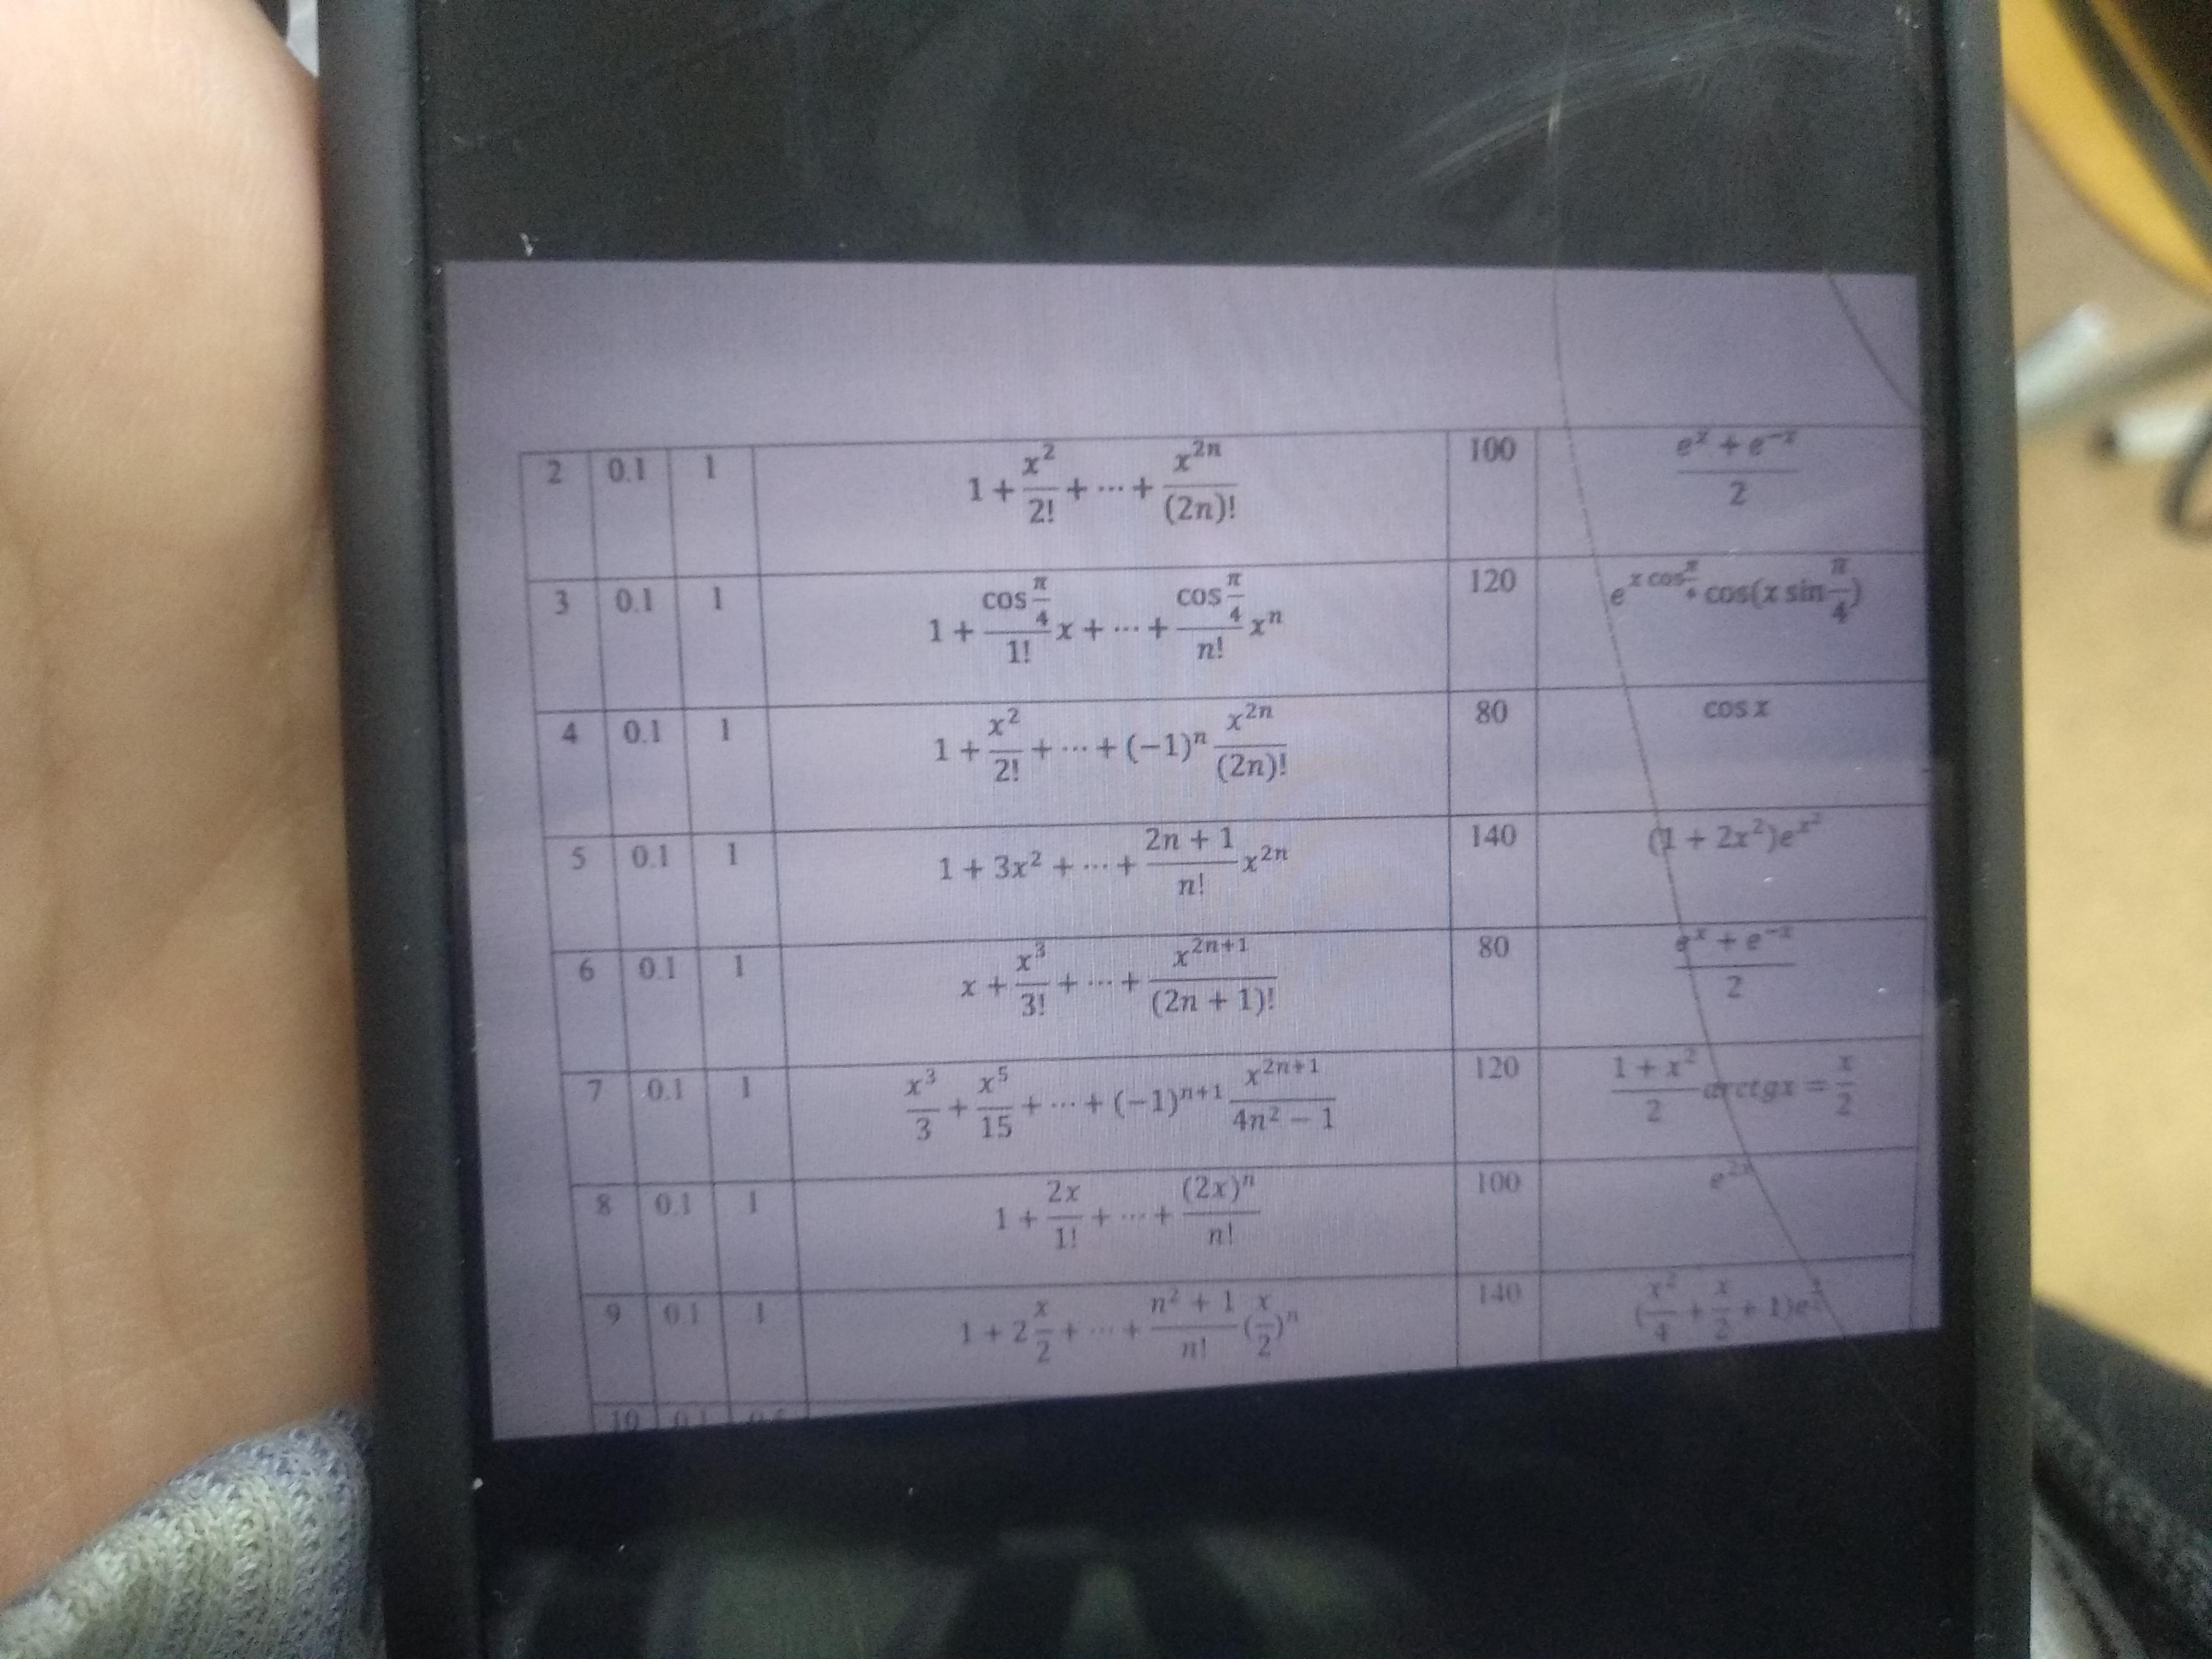 2 0.1 1 1 + x²/2! + ⋯ + x²ⁿ/(2n)! 100 (eˣ + e⁻ˣ)/2
3 0.1 1 1 + (cos π/4)/1! x + ⋯ + (cos π/4)/n! xⁿ 120 e^(x cos π/4) cos(x sin π/4)
4 0.1 1 1 + x²/2! + ⋯ + (−1)ⁿ x²ⁿ/(2n)! 80 cos x
5 0.1 1 1 + 3x² + ⋯ + (2n + 1)/n! x²ⁿ 140 (1 + 2x²)e^(x²)
6 0.1 1 x + x³/3! + ⋯ + x²ⁿ⁺¹/(2n + 1)! 80 (eˣ + e⁻ˣ)/2
7 0.1 1 x³/3 + x⁵/15 + ⋯ + (−1)ⁿ⁺¹ x²ⁿ⁺¹/(4n² − 1) 120 (1 + x²)/2 arctgx = x/2
8 0.1 1 1 + 2x/1! + ⋯ + (2x)ⁿ/n! 100 e²ˣ
9 0.1 1 1 + 2 x/2 + ⋯ + (n² + 1)/n! (x/2)ⁿ 140 (x²/4 + x/2 + 1)e^(x/2)
10 0.1